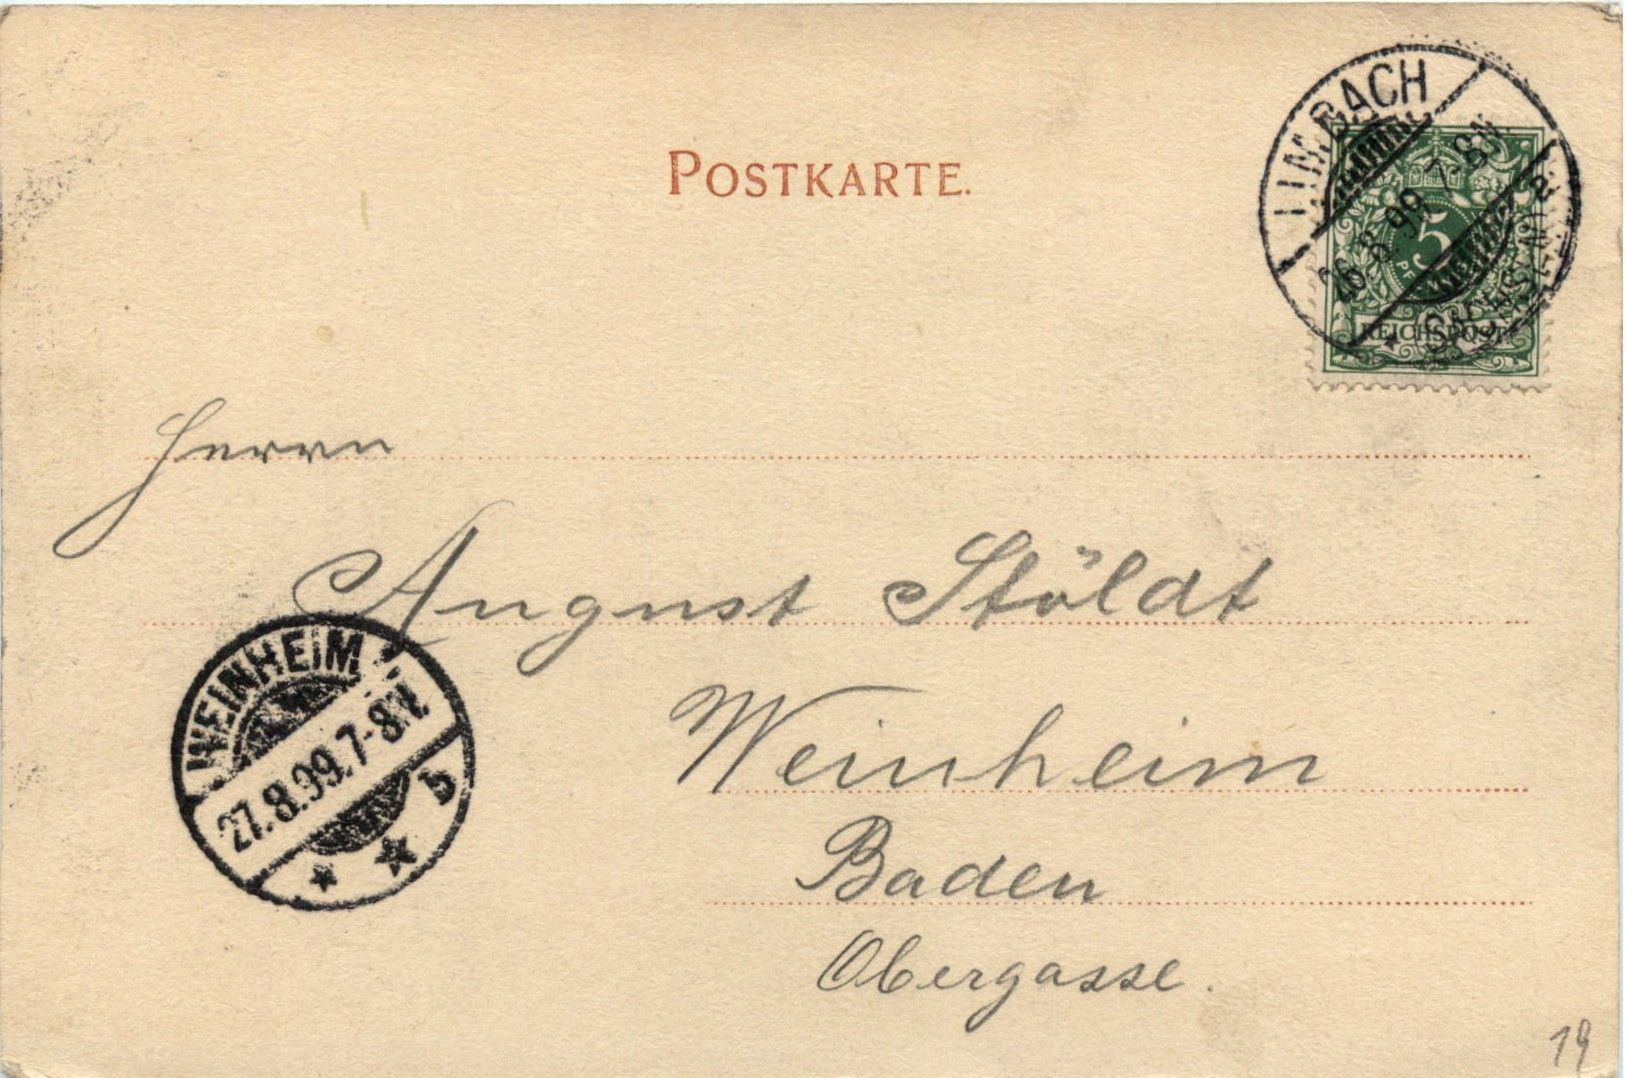 POSTKARTE.
LIMBACH
26.8.99. 7-8N.
(SACHSEN) a
5
REICHSPOST
Herrn
August Stöldt
Weinheim
Baden
Obergasse.
WEINHEIM
27.8.99.7-8V.
b
19